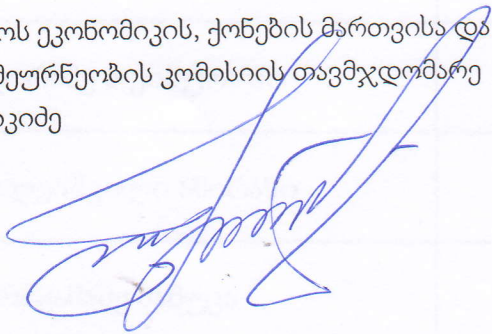 ოს ეკონომიკის, ქონების მართვისა და
მეურნეობის კომისიის თავმჯდომარე
იკიძე